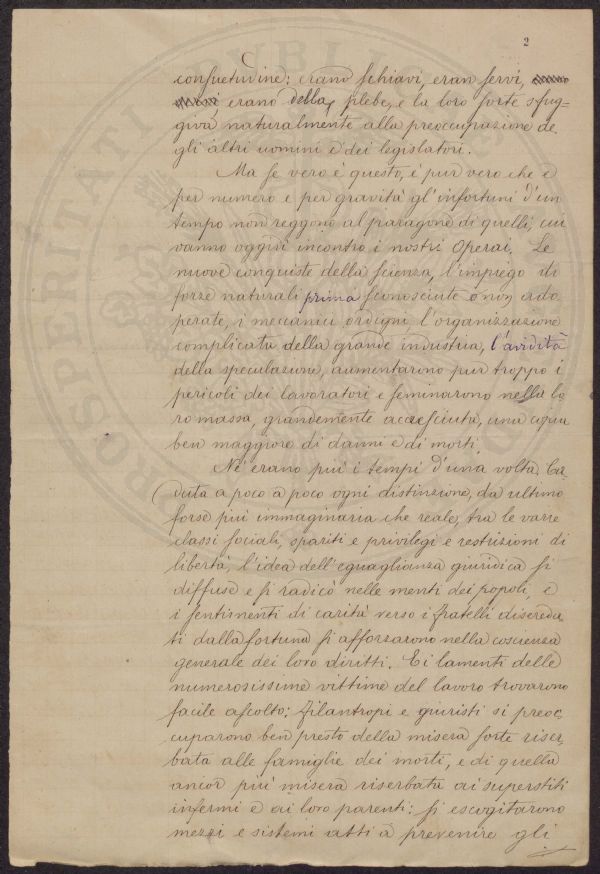 2
consuetudine: erano schiavi, eran servi,
erano della plebe, e la loro sorte sfug=
giva naturalmente alla preoccupazione de
gli altri uomini e dei legislatori.
Ma se vero è questo, è pur vero che e
per numero e per gravità gl'infortuni d'un
tempo non reggono al paragone di quelli, cui
vanno oggidì incontro i nostri operai. Le
nuove conquiste della scienza, l'impiego di
forze naturali prima sconosciute o non ado
perate, i meccanici ordigni l'organizzazione
complicata della grande industria, l'avidità
della speculazione, aumentarono pur troppo i
pericoli dei lavoratori e seminarono nella lo
ro massa, grandemente accresciuta, una copia
ben maggiore di danni e di morti.
Nè erano più i tempi d'una volta. Ca-
duta a poco a poco ogni distinzione, da ultimo
forse più immaginaria che reale, tra le varie
classi sociali, spariti e privilegi e restrizioni di
libertà, l'idea dell'eguaglianza giuridica si
diffuse e si radicò nelle menti dei popoli, e
i sentimenti di carità verso i fratelli disereda
ti dalla fortuna si afforzarono nella coscienza
generale dei loro diritti. E i lamenti delle
numerosissime vittime del lavoro trovarono
facile ascolto: filantropi e giuristi si preoc
cuparono ben presto della misera sorte riser-
bata alle famiglie dei morti, e di quella
ancor più misera riserbata ai superstiti
infermi e ai loro parenti: si escogitarono
mezzi e sistemi atti a prevenire gli